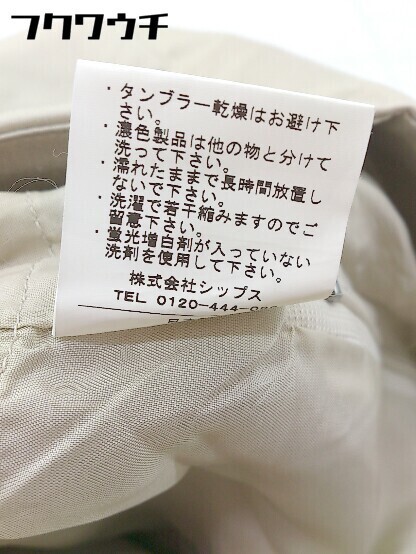 フクワウチ
・タンブラー乾燥はお避け下
さい。
・濃色製品は他の物と分けて
洗って下さい。
・濡れたままで長時間放置し
ないで下さい。
・洗濯で若干縮みますのでご
留意下さい。
・蛍光増白剤が入っていない
洗剤を使用して下さい。
株式会社シップス
TEL 0120-444-